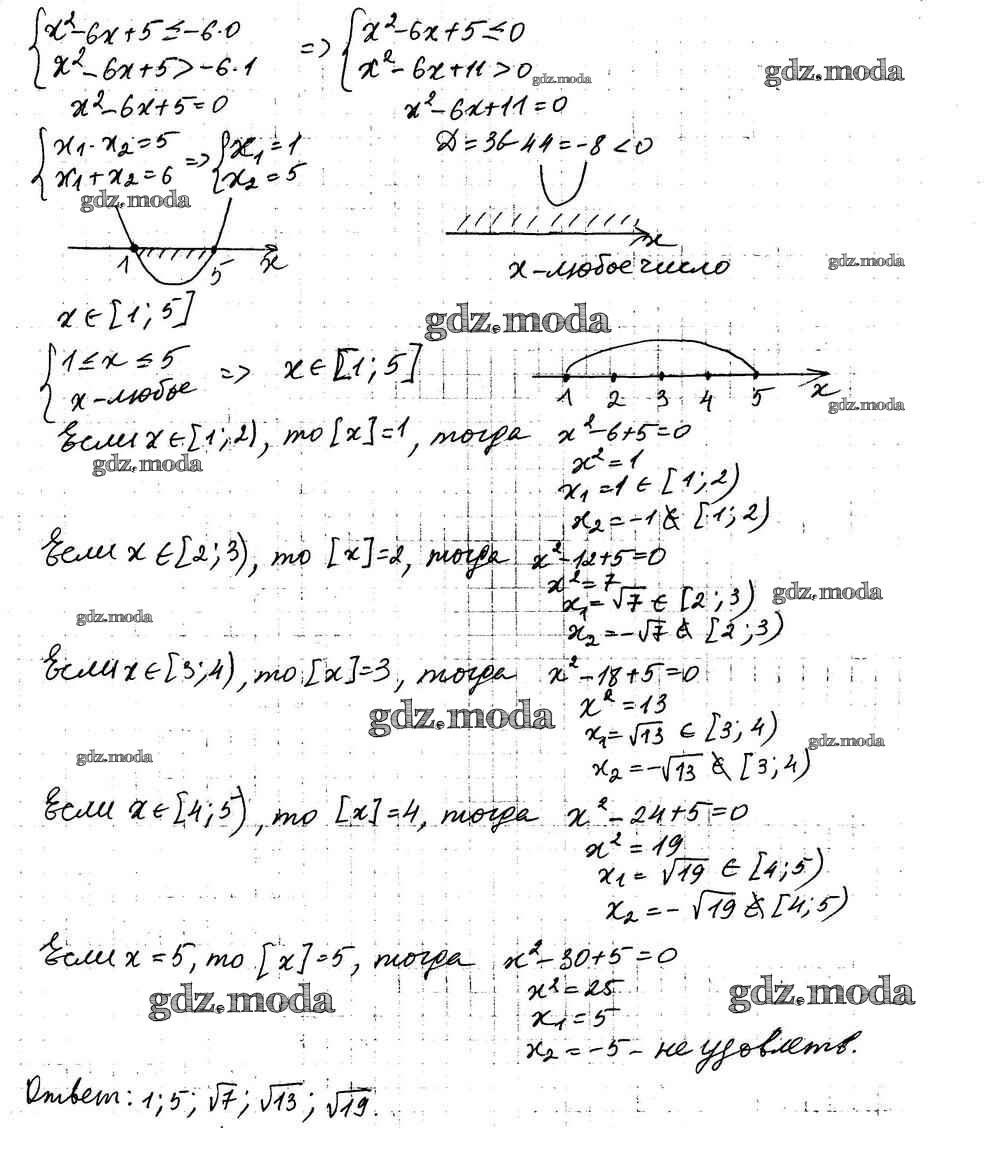 x²-6x+5≤-6·0 => x²-6x+5≤0
x²-6x+5>-6·1 x²-6x+11>0
gdz.moda
gdz.moda
x²-6x+5=0 x²-6x+11=0
x₁·x₂=5 => x₁=1 Д=36-44=-8<0
x₁+x₂=6 x₂=5
gdz.moda
1 5 x x
x-любое число
gdz.moda
x∈[1;5]
gdz.moda
1≤x≤5 => x∈[1;5]
x-любое
1 2 3 4 5 x
gdz.moda
Если x∈[1;2), то [x]=1, тогда x²-6+5=0
gdz.moda
x²=1
x₁=1∈[1;2)
x₂=-1∉[1;2)
Если x∈[2;3), то [x]=2, тогда x²-12+5=0
x²=7
x₁=√7∈[2;3)
gdz.moda
gdz.moda
x₂=-√7∉[2;3)
Если x∈[3;4), то [x]=3, тогда x²-18+5=0
x²=13
gdz.moda
x₁=√13∈[3;4)
gdz.moda
gdz.moda
x₂=-√13∉[3;4)
Если x∈[4;5), то [x]=4, тогда x²-24+5=0
x²=19
x₁=√19∈[4;5)
x₂=-√19∉[4;5)
Если x=5, то [x]=5, тогда x²-30+5=0
gdz.moda
x²=25
gdz.moda
x₁=5
x₂=-5-не удовлетв.
Ответ: 1; 5; √7; √13; √19.